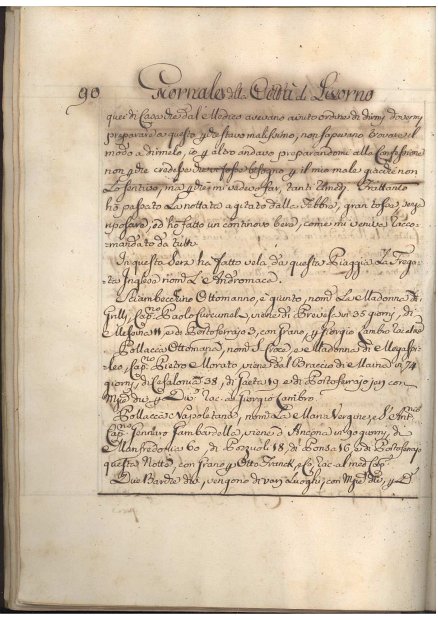 90 Giornale della Città di Livorno
quei di Casa che dal Medico avevano avuto ordine di dirmi dovermi
preparare a questo, che stavo malissimo, non sapevano trovare il
modo a dirmelo, io altro andavo preparandomi alla Confessione
non che credesse vi fosse bisogno, il mio male giacché non
Lo sentivo, ma mi vedevo far tanti rimedj. Frattanto
ho passato La nottata agitato dalla Febbre, gran tosse senza
riposare, ed ho fatto un continovo bere, come mi veniva racco-
mandato da tutti.
In questa Sera ha fatto vela da questa Piaggia La Frega-
ta Inglese nom.ª L'Andromaca.
Sciambecchino Ottomanno, è giunto, nom.º La Madonna di
Grilli, Cap.no Paolo, viene di in 35 giorni, di
Messina 11, e di Portoferrajo 3, con Grano, Giorgio Cambro
Pollacca Ottomana, nom.ª S. Croce, e Madonna di Megaspi-
leo, Cap.no Pietro Morato, viene dal Braccio di Maina in 74
giorni, di Cefalonia 38, di Gaeta 19 e di Portoferrajo jeri con
rac. a Giorgio Cambro.
Pollacca Napoletana, nom.ª La Maria Vergine, e S. Ant.º
Cap.no Gennaro Gambardella, viene d'Ancona in 90 giorni, di
Manfredonia 60, di Pozzuoli 18, di Ponsa 16, e di Portoferrajo
questa Notte, con Grano, Otto Franck, rac. al med.º Cap.no
Due Barche vengono di varj Luoghi, con